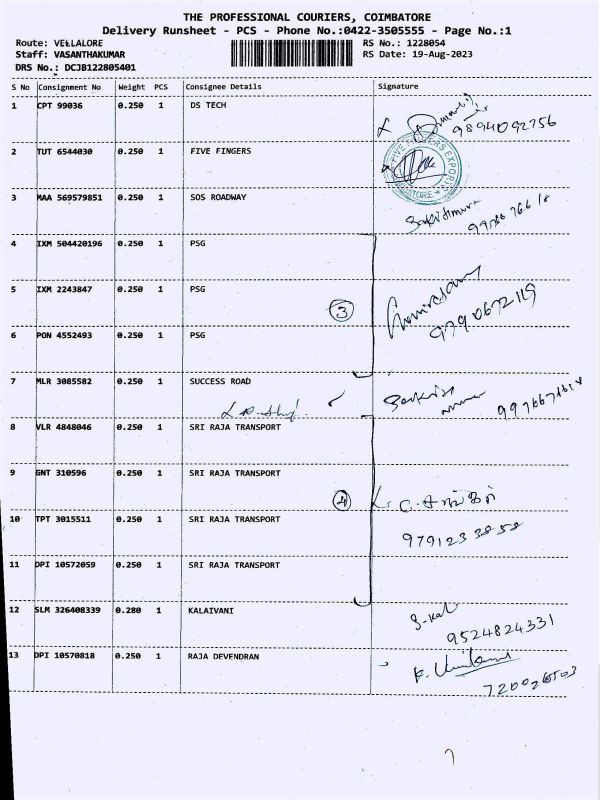 THE PROFESSIONAL COURIERS, COIMBATORE
Delivery Runsheet - PCS - Phone No.:0422-3505555 - Page No.:1
Route: VELLALORE RS No.: 1228054
Staff: VASANTHAKUMAR RS Date: 19-Aug-2023
DRS No.: DCJB122805401
S No Consignment No Weight PCS Consignee Details Signature
1 CPT 99036 0.250 1 DS TECH
9894092756
2 TUT 6544030 0.250 1 FIVE FINGERS
FIVE FINGERS EXPORTS
3 MAA 569579851 0.250 1 SOS ROADWAY
4 IXM 504420196 0.250 1 PSG
5 IXM 2243847 0.250 1 PSG
3
9790672119
6 PON 4552493 0.250 1 PSG
7 MLR 3085582 0.250 1 SUCCESS ROAD
8 VLR 4848046 0.250 1 SRI RAJA TRANSPORT
9 GNT 310596 0.250 1 SRI RAJA TRANSPORT
4
10 TPT 3015511 0.250 1 SRI RAJA TRANSPORT
11 DPI 10572059 0.250 1 SRI RAJA TRANSPORT
12 SLM 326408339 0.280 1 KALAIVANI
9524824331
13 DPI 10570818 0.250 1 RAJA DEVENDRAN